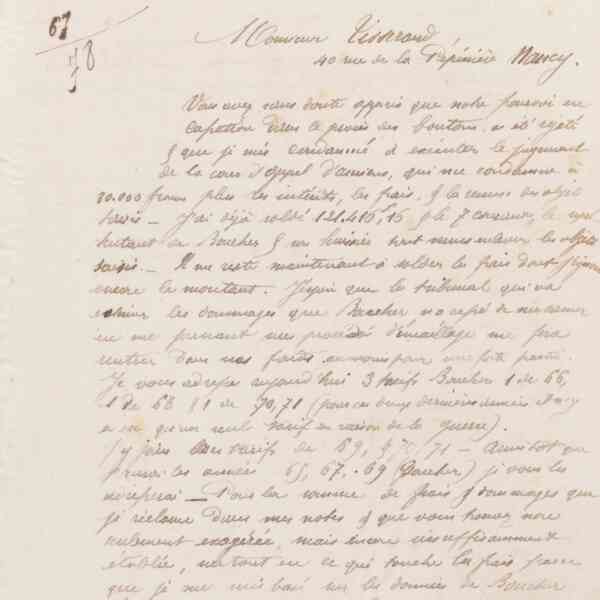 67
78
Monsieur Tisserand,
40 rue de la Pépinière Nancy.
Vous avez sans doute appris que notre pourvoi en
cassation dans le procès des boutons a été rejeté
& que je suis condamné à exécuter le jugement
de la cour d'appel d'amiens, qui me condamne à
francs plus les intérêts, les frais & la remise des objets
saisis — J'ai déjà soldé 121.416,16 & le 7 courant, le
de Boucher & ses huissiers sont venus enlever les objets
saisis. — Il me reste maintenant à solder les frais dont j'ignore
encore le montant. J'espère que le tribunal qui va
estimer les dommages que Boucher n'a cessé de me causer
en me prenant mes procédés d'émaillage me fera
rentrer dans nos fonds au moins pour une forte partie.
Je vous adresse aujourd'hui 3 tarifs Boucher 1 de 66,
1 de 68 & 1 de 70,71 (pour ces deux dernières années il n'y
a eu qu'un seul tarif en raison de la guerre).
J'y joins tarifs de 69, & 70, 71 — Aussitôt que
les années 65, 67, 69 (Boucher) je vous les
adresserai — Pour la somme de frais & dommages que
je réclame dans mes notes & que vous trouvez non
seulement exagérée, mais encore insuffisamment
établie, surtout en ce qui touche les frais
que je me suis basé sur les données de Boucher